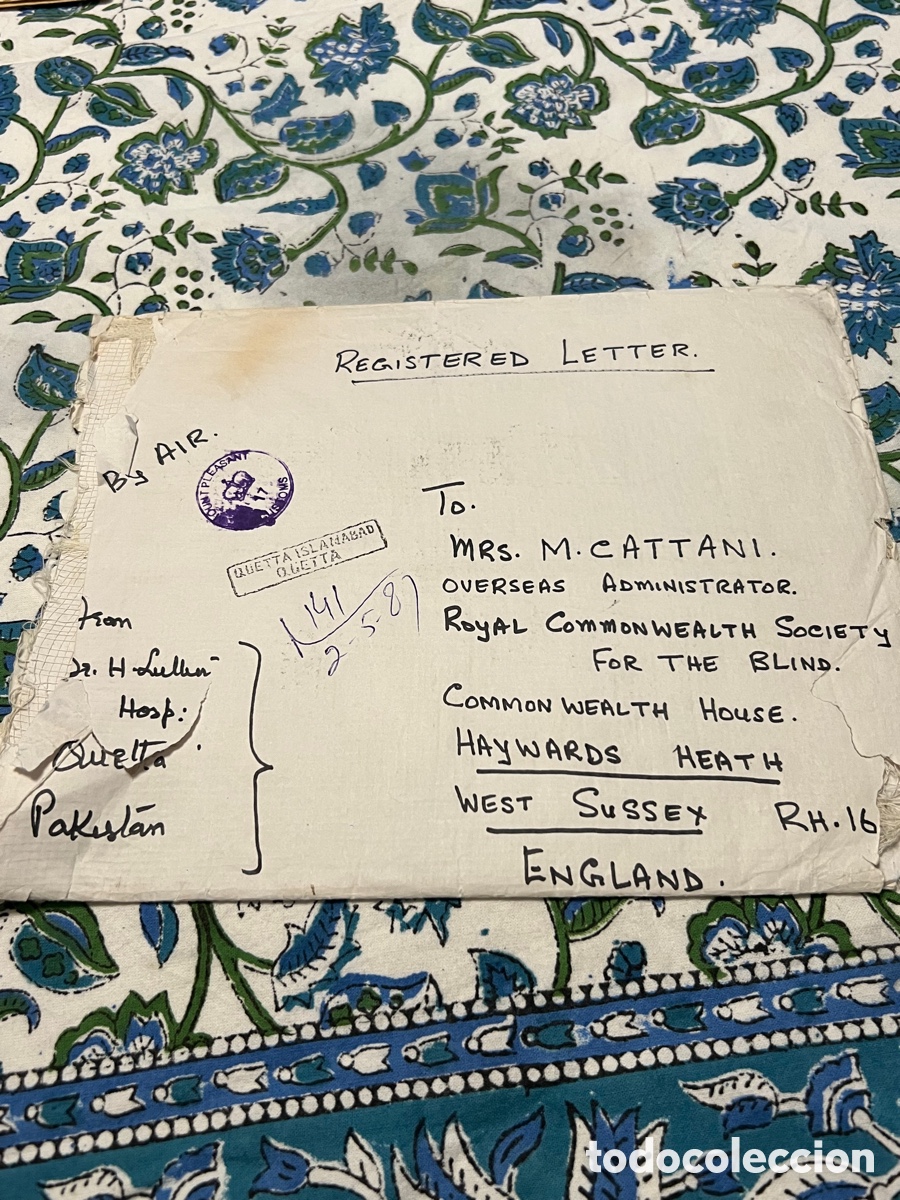 REGISTERED LETTER.
By AIR.
OUNT PLEASANT
17
QUETTA ISLAMABAD
QUETTA
141
2-5-87
To.
MRS. M. CATTANI.
OVERSEAS ADMINISTRATOR.
ROYAL COMMONWEALTH SOCIETY
FOR THE BLIND.
COMMONWEALTH HOUSE.
HAYWARDS HEATH
WEST SUSSEX RH.16
ENGLAND.
From
Dr. H.
Hosp:
Quetta
Pakistan
todocoleccion